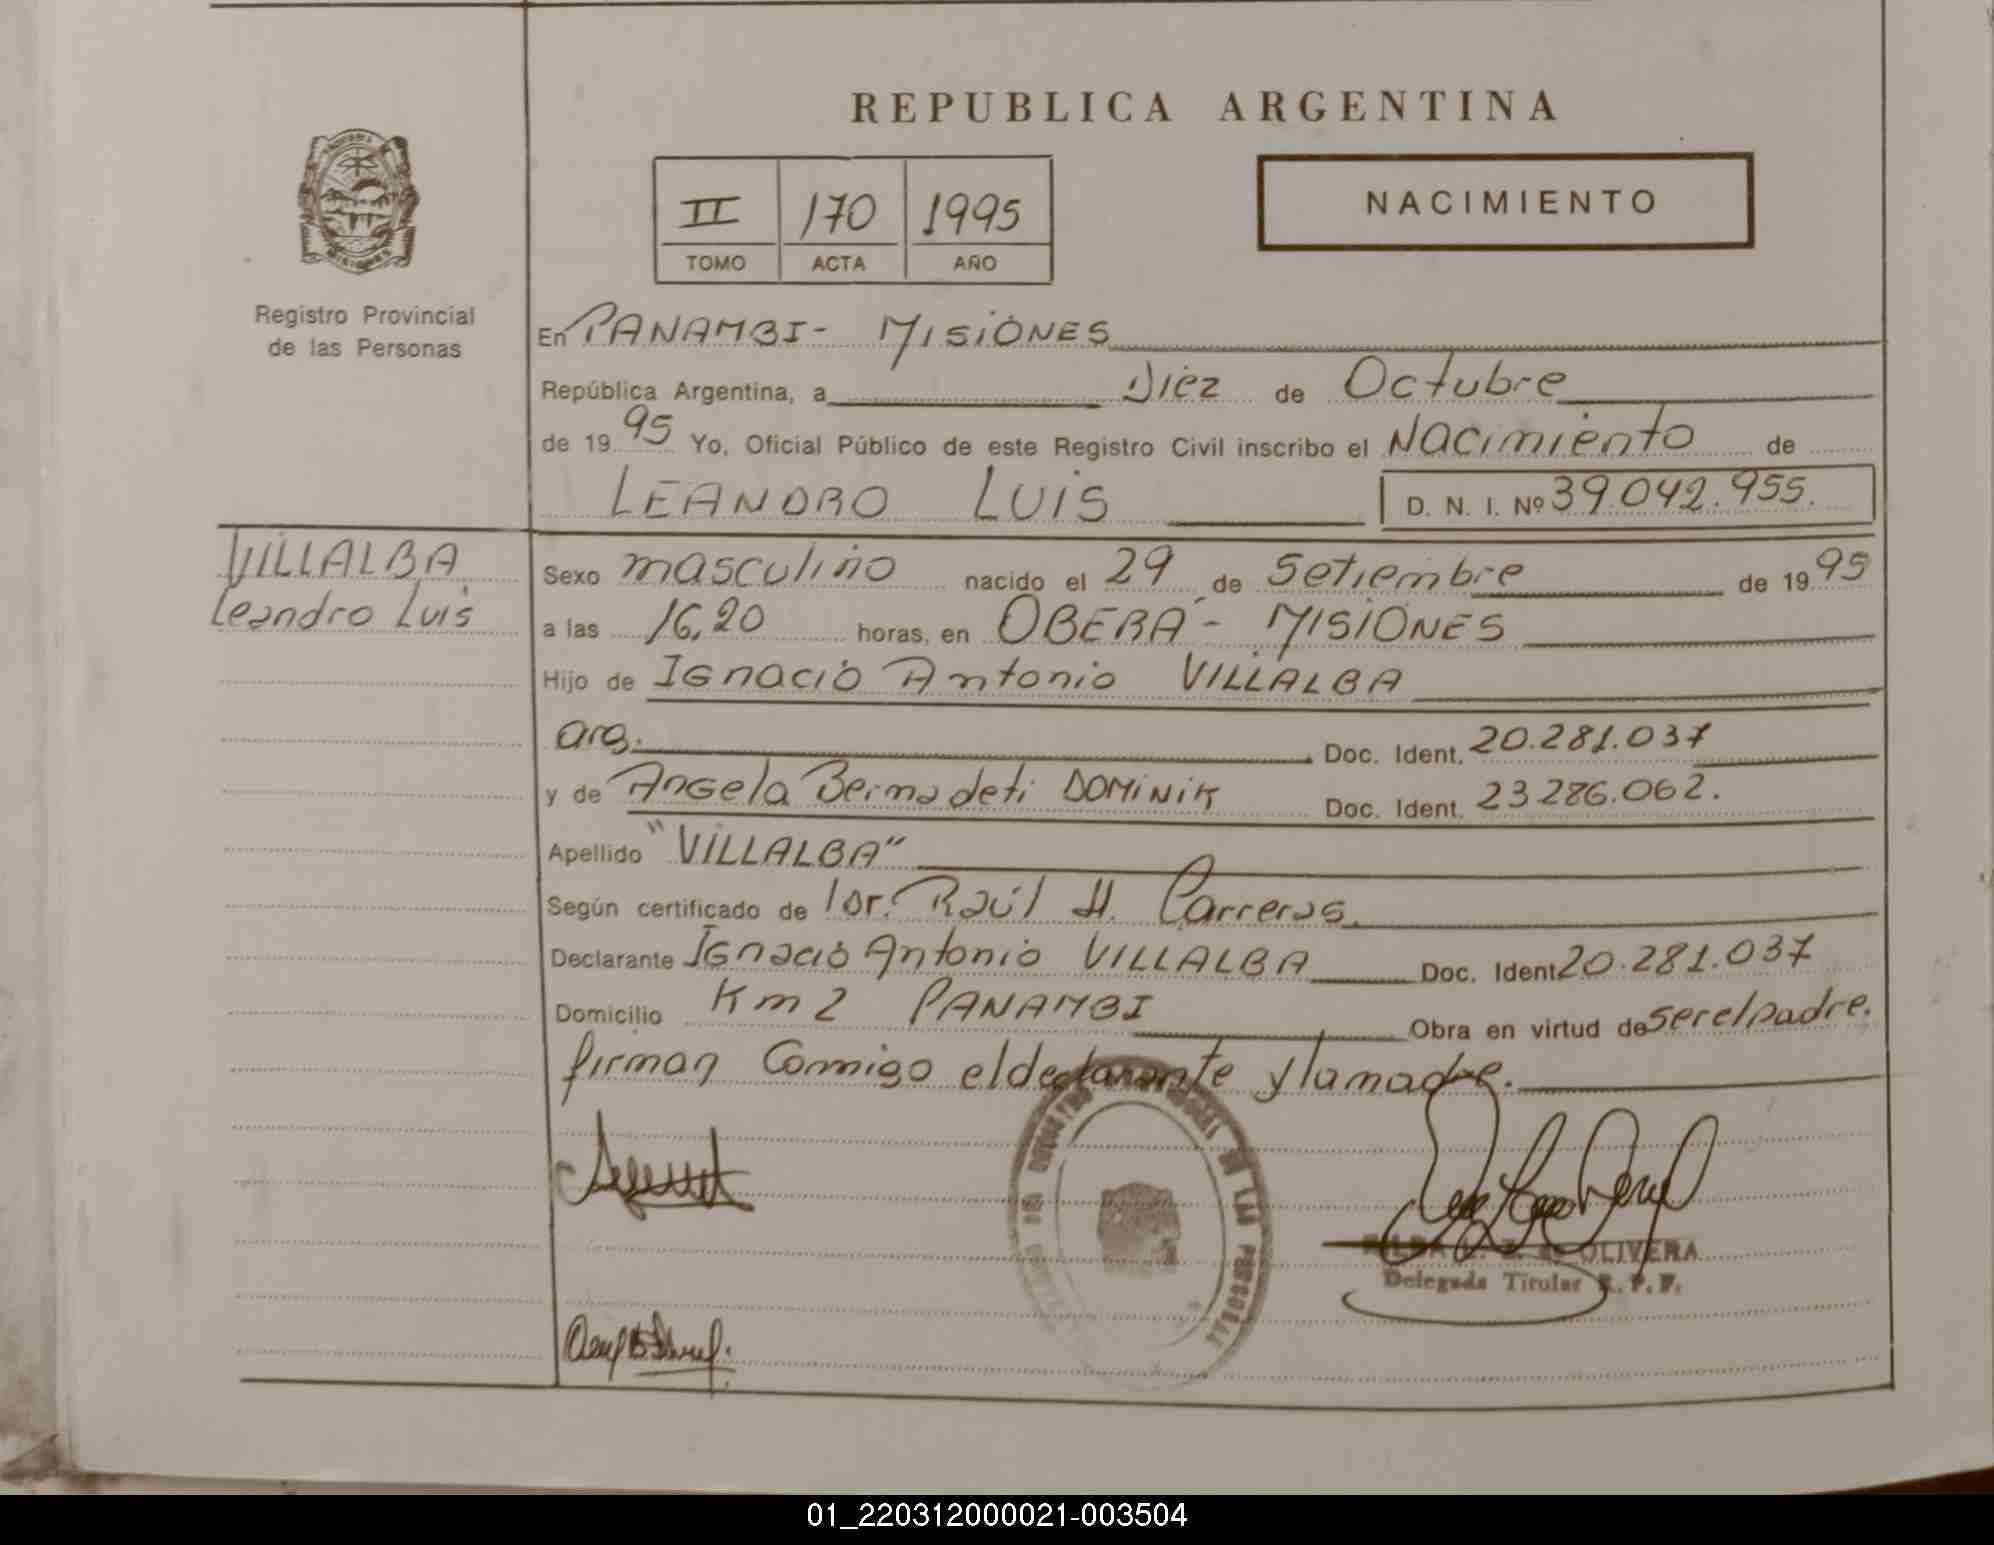 REPUBLICA ARGENTINA
II 170 1995
TOMO ACTA AÑO
NACIMIENTO
Registro Provincial
de las Personas
En PANAMBI - MISIONES
República Argentina, a Diez de Octubre
de 19 95 Yo, Oficial Público de este Registro Civil inscribo el Nacimiento de
LEANDRO LUIS D. N. I. Nº 39.042.955.
VILLALBA
Leandro Luis
Sexo masculino nacido el 29 de Setiembre de 19 95
a las 16,20 horas, en OBERÁ - MISIONES
Hijo de Ignacio Antonio VILLALBA
arg. Doc. Ident. 20.281.037
y de Angela Bernadeti DOMINIK Doc. Ident. 23 286.062.
Apellido "VILLALBA"
Según certificado de Raúl H. Carreras.
Declarante Ignacio Antonio VILLALBA Doc. Ident 20.281.037
Domicilio Km 2 PANAMBI Obra en virtud de ser el padre.
firman Conmigo el declarante y la madre.
DE LAS PERSONAS
OLIVERA
Delegada Titular R. P. P.
01_220312000021-003504